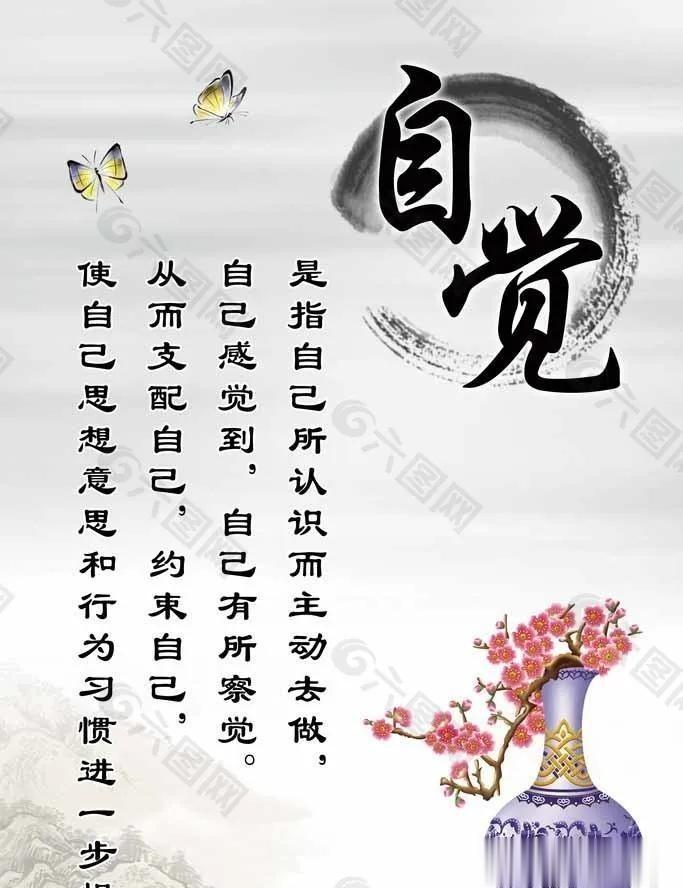 自觉
是指自己所认识而主动去做，
自己感觉到，自己有所察觉。
从而支配自己，约束自己，
使自己思想意思和行为习惯进一步
六图网